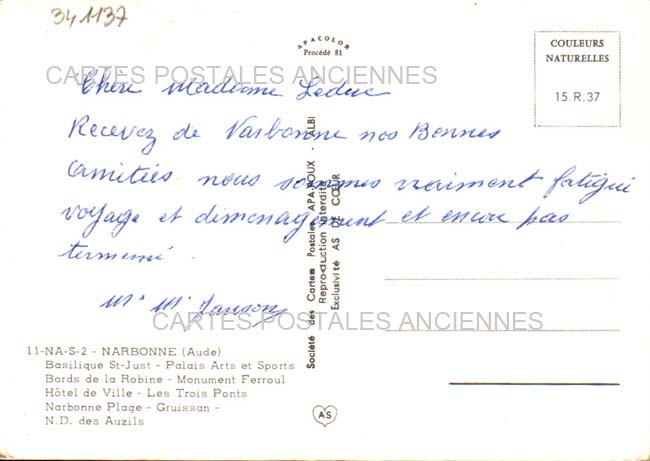 341137
APACOLOR
Procédé 81
COULEURS
NATURELLES
15.R.37
CARTES POSTALES ANCIENNES
Chère Madame Leduc
Recevez de Narbonne nos Bonnes
amitiés nous sommes vraiment fatigué
voyage et dimenagement et encore pas
termené
Mr Me Janson
CARTES POSTALES ANCIENNES
Société des Cartes Postales APA-POUX - ALBI
Reproduction interdite
Exclusivité AS DE CŒUR
11-NA-S-2 - NARBONNE (Aude)
Basilique St-Just - Palais Arts et Sports
Bords de la Robine - Monument Ferroul
Hôtel de Ville - Les Trois Ponts
Narbonne Plage - Gruissan -
N.D. des Auzils
AS